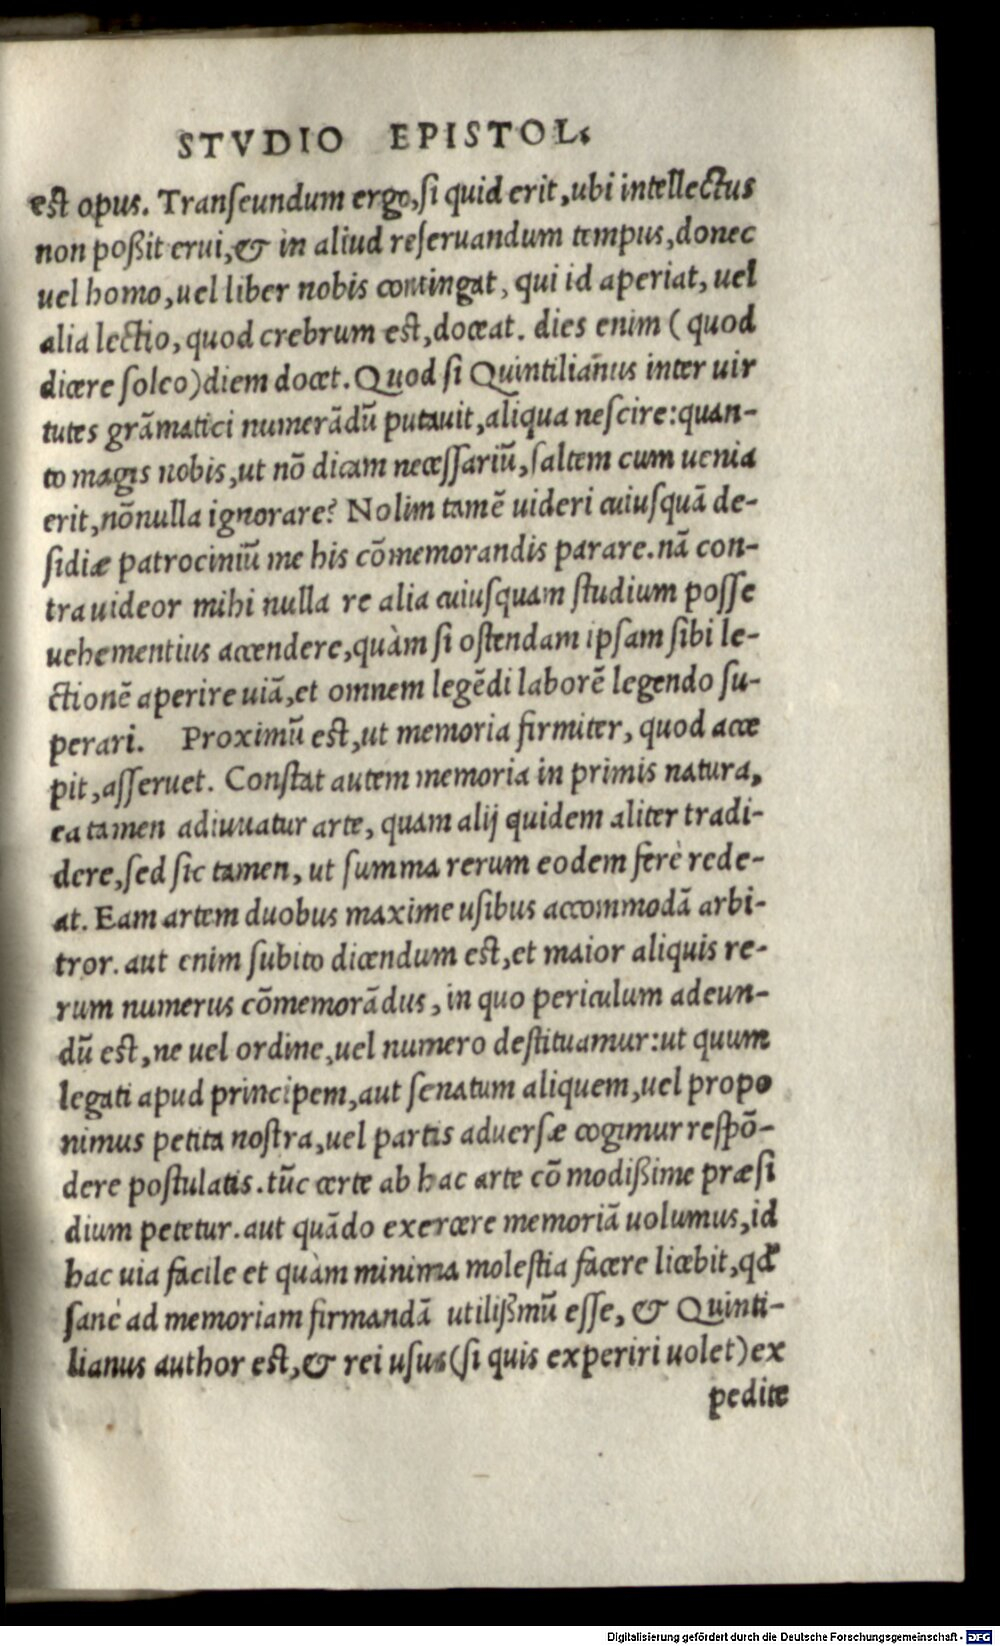 STVDIO EPISTOL.
est opus. Transeundum ergo, si quid erit, ubi intellectus
non poßit erui, & in aliud reseruandum tempus, donec
uel homo, uel liber nobis contingat, qui id aperiat, uel
alia lectio, quod crebrum est, doceat. dies enim ( quod
dicere soleo) diem docet. Quod si Quintiliañus inter uir
tutes grāmatici numerādū putauit, aliqua nescire: quan-
to magis nobis, ut nō dicam necessariū, saltem cum uenia
erit, nōnulla ignorare? Nolim tamē uideri cuiusquā de-
sidiæ patrociniū me his cōmemorandis parare. nā con-
tra uideor mihi nulla re alia cuiusquam studium posse
uehementius accendere, quàm si ostendam ipsam sibi le-
ctionē aperire uiā, et omnem legēdi laborē legendo su-
perari. Proximū est, ut memoria firmiter, quod acce
pit, asseruet. Constat autem memoria in primis natura,
ea tamen adiuuatur arte, quam alij quidem aliter tradi-
dere, sed sic tamen, ut summa rerum eodem ferè rede-
at. Eam artem duobus maxime usibus accommodā arbi-
tror. aut enim subito dicendum est, et maior aliquis re-
rum numerus cōmemorādus, in quo periculum adeun-
dū est, ne uel ordine, uel numero destituamur: ut quum
legati apud principem, aut senatum aliquem, uel propo
nimus petita nostra, uel partis aduersæ cogimur respō-
dere postulatis. tūc certe ab hac arte cōmodißime præsi
dium petetur. aut quādo exercere memoriā uolumus, id
hac uia facile et quàm minima molestia facere licebit, qd
sanè ad memoriam firmandā utilißmū esse, & Quinti-
lianus author est, & rei usus (si quis experiri uolet) ex
pedite
Digitalisierung gefördert durch die Deutsche Forschungsgemeinschaft - DFG